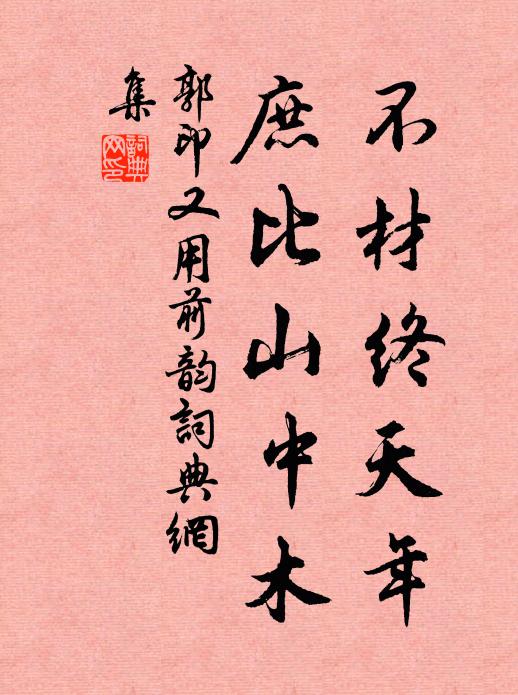 不材終天年
庶比山中木
郭印又用前韵詞典網
集
詞典
网印